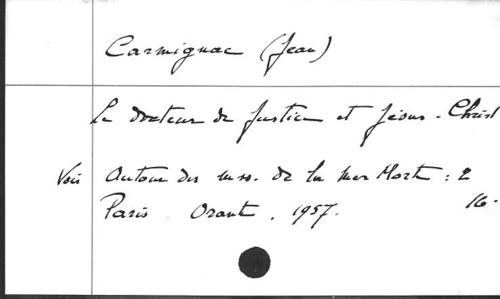 Carmignac (Jean)
Le docteur de Justice et Jésus-Christ
Voir Autour des mss. de la mer Morte : 2
Paris. Orante. 1957. 16.